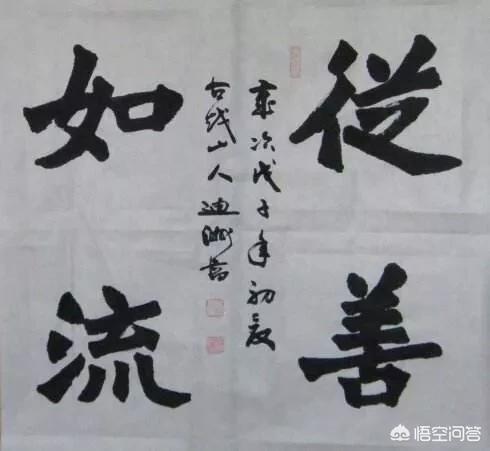 從善
如流
歲次戊子年初夏
古越山人迪書
悟空问答